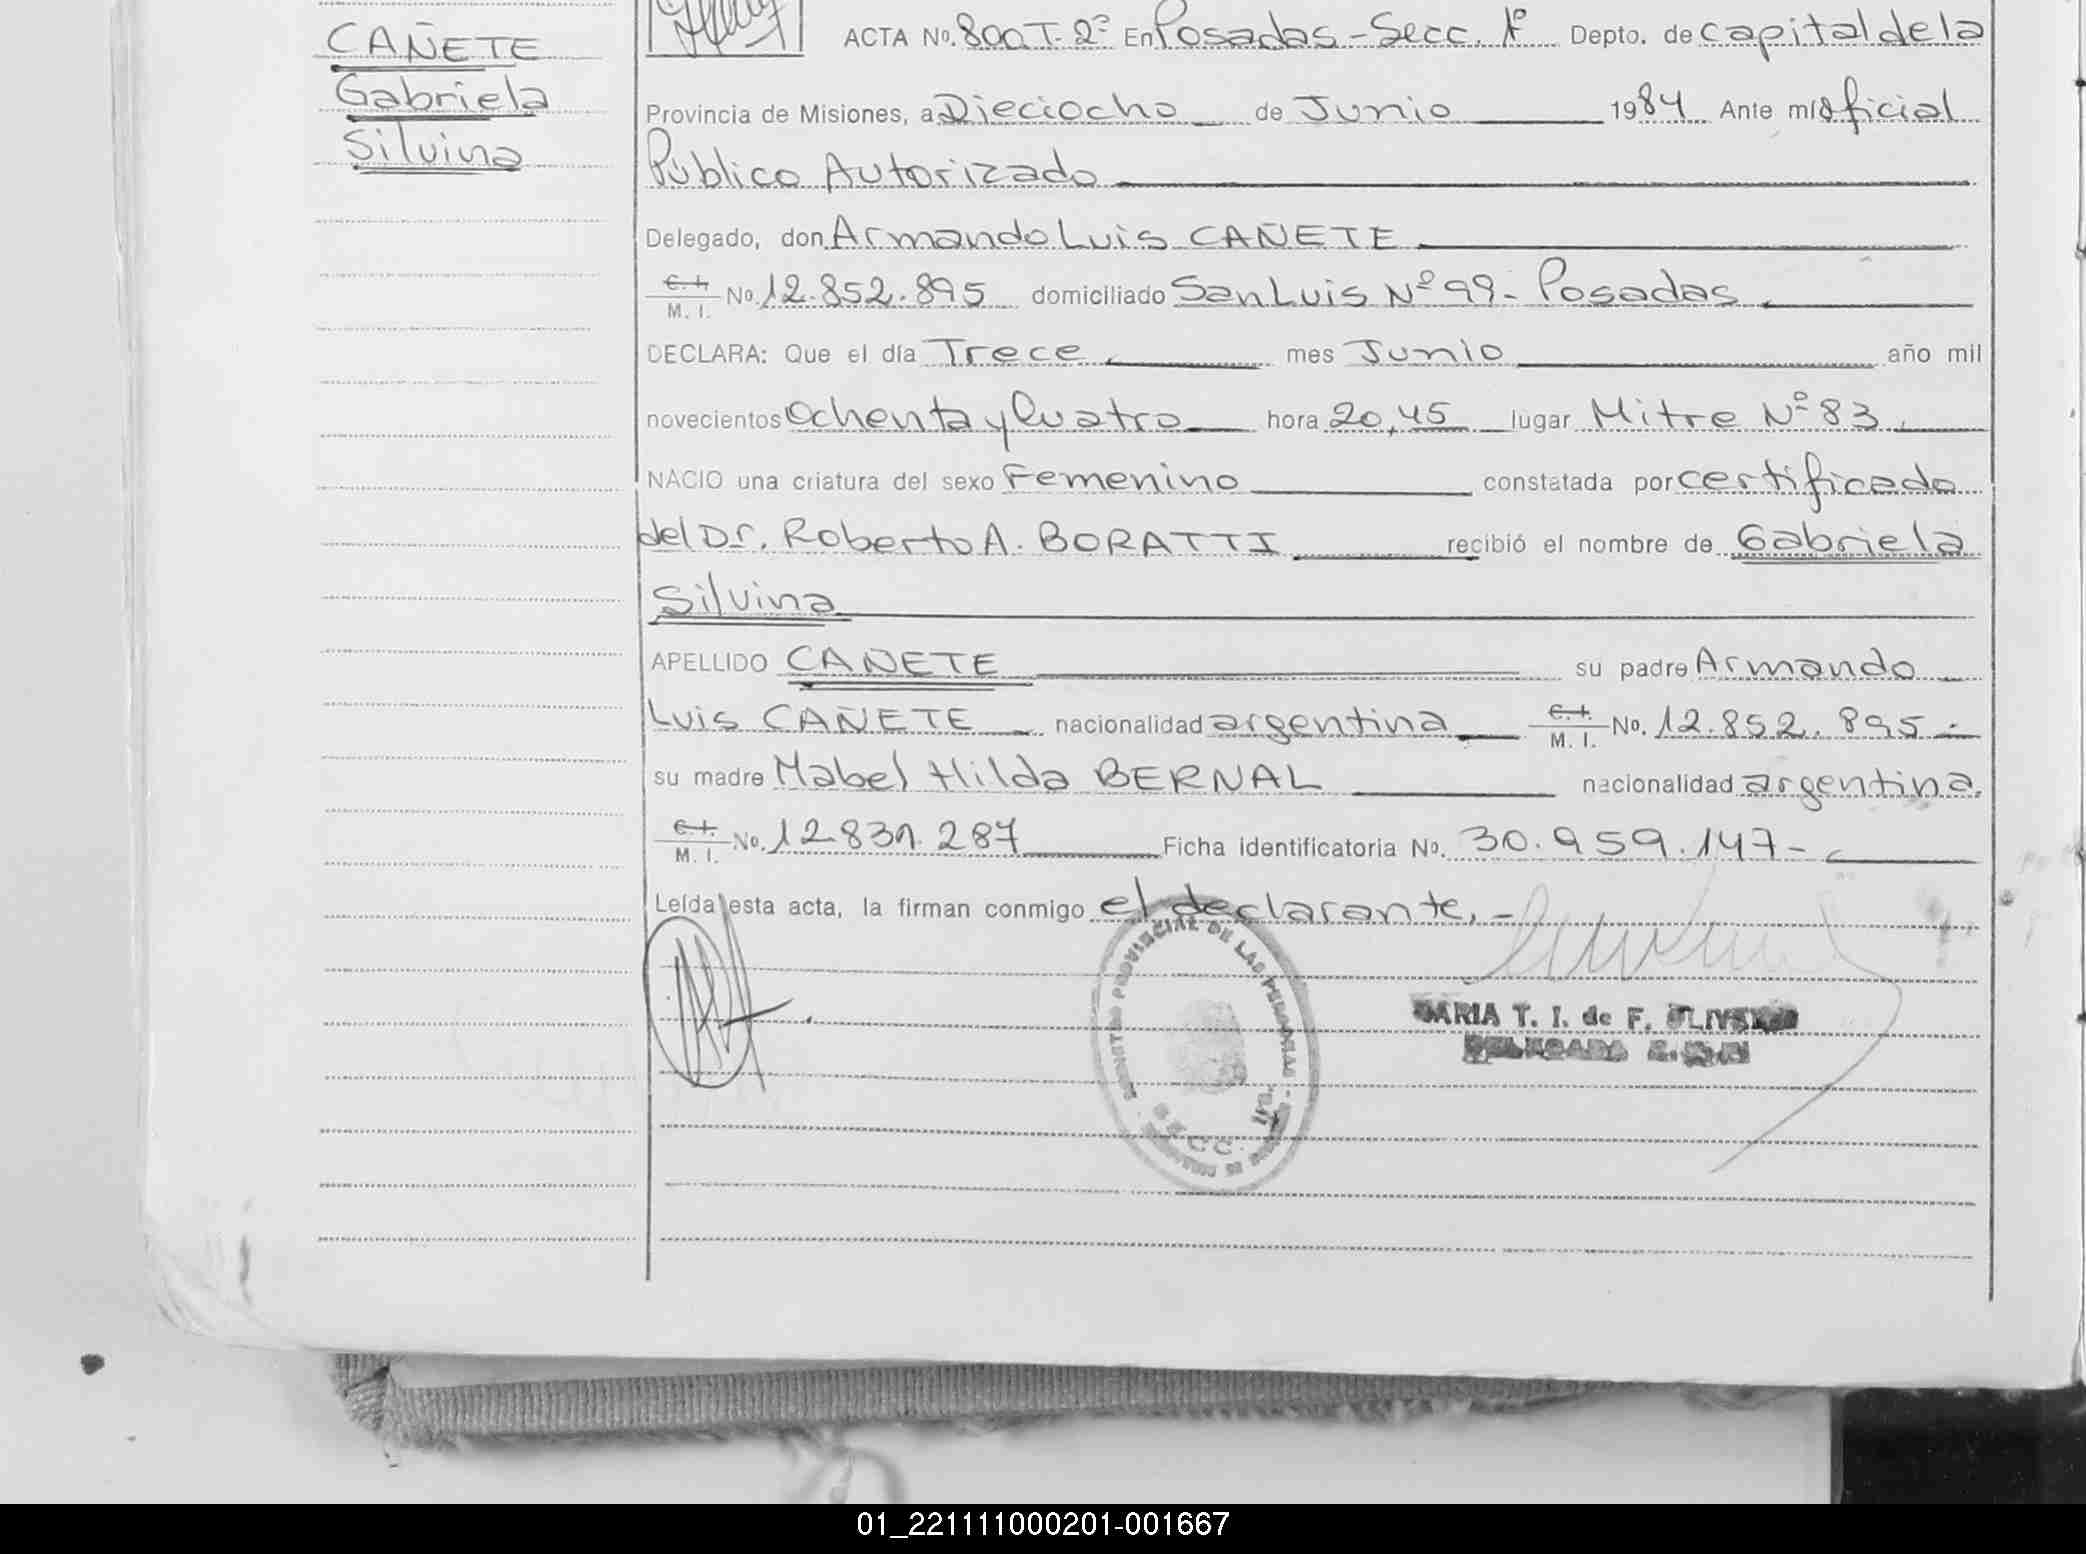 CAÑETE
Gabriela
Silvina
ACTA No. 800 T. 2º En Posadas - Secc. 1º Depto. de capital de la
Provincia de Misiones, a Dieciocho de Junio 1984 Ante mí Oficial
Público Autorizado
Delegado, don Armando Luis CAÑETE
C. I. M. I. No. 12.852.895 domiciliado San Luis Nº 99 - Posadas
DECLARA: Que el día Trece mes Junio año mil
novecientos Ochenta y Cuatro hora 20,45 lugar Mitre Nº 83
NACIO una criatura del sexo Femenino constatada por certificado
del Dr. Roberto A. BORATTI recibió el nombre de Gabriela
Silvina
APELLIDO CAÑETE su padre Armando
Luis CAÑETE nacionalidad argentina C. I. M. I. No. 12.852.895 -
su madre Mabel Hilda BERNAL nacionalidad argentina.
C. I. M. I. No. 12.831.287 Ficha identificatoria No. 30.959.147 -
Leída esta acta, la firman conmigo el declarante. -
PROVINCIAL DE LAS PERSONAS
MARIA T. I. de F.
DELEGADA
01_221111000201-001667